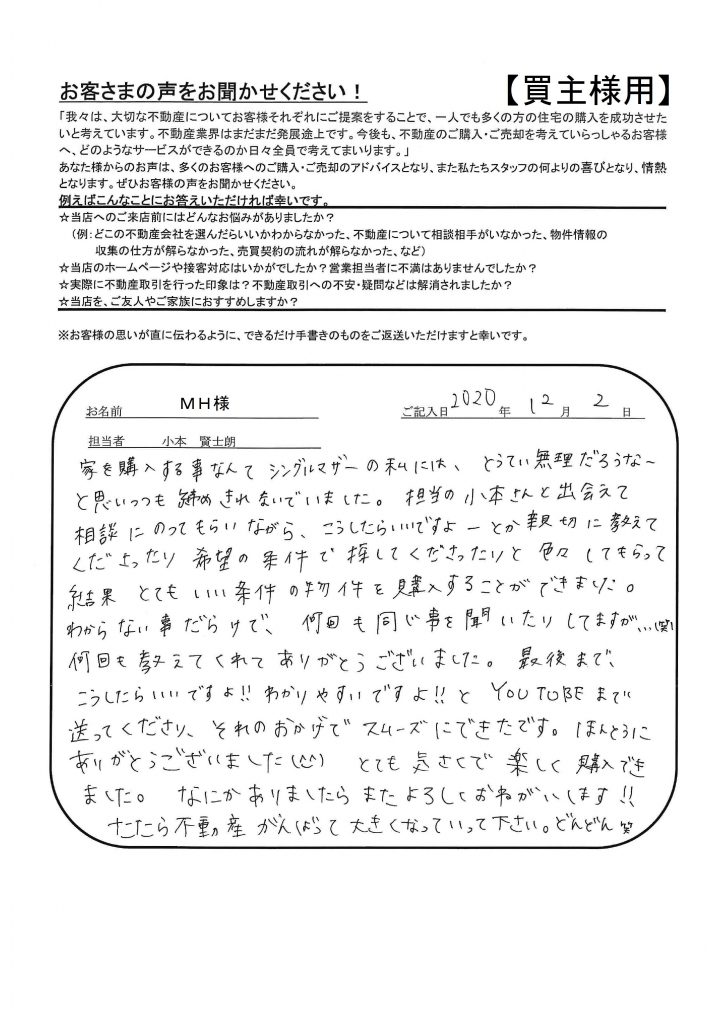 お客さまの声をお聞かせください！
【買主様用】
「我々は、大切な不動産についてお客様それぞれにご提案をすることで、一人でも多くの方の住宅の購入を成功させた
いと考えています。不動産業界はまだまだ発展途上です。今後も、不動産のご購入・ご売却を考えていらっしゃるお客様
へ、どのようなサービスができるのか日々全員で考えてまいります。」
あなた様からのお声は、多くのお客様へのご購入・ご売却のアドバイスとなり、また私たちスタッフの何よりの喜びとなり、情熱
となります。ぜひお客様の声をお聞かせください。
例えばこんなことにお答えいただければ幸いです。
☆当店へのご来店前にはどんなお悩みがありましたか？
（例：どこの不動産会社を選んだらいいかわからなかった、不動産について相談相手がいなかった、物件情報の
収集の仕方が解らなかった、売買契約の流れが解らなかった、など）
☆当店のホームページや接客対応はいかがでしたか？営業担当者に不満はありませんでしたか？
☆実際に不動産取引を行った印象は？不動産取引への不安・疑問などは解消されましたか？
☆当店を、ご友人やご家族におすすめしますか？
※お客様の思いが直に伝わるように、できるだけ手書きのものをご返送いただけますと幸いです。
お名前 MH様 ご記入日 2020 年 12 月 2 日
担当者 小本 賢士朗
家を購入する事なんて シングルマザーの私には、とうてい無理だろうな〜
と思いつつも 諦めきれないでいました。担当の小本さんと出会えて
相談にのってもらいながら、こうしたらいいですよーとか親切に教えて
くださったり 希望の条件で探してくださったりと色々してもらって
結果 とてもいい条件の物件を購入することができました。
わからない事だらけで、何回も同じ事を聞いたりしてますが...(笑)
何回も教えてくれてありがとうございました。最後まで、
こうしたらいいですよ!! わかりやすいですよ!! と YOUTOBEまで
送ってくださり、それのおかげでスムーズにできたです。ほんとうに
ありがとうございました(^^) とても気さくで楽しく購入でき
ました。なにかありましたらまたよろしくおねがいします!!
たたら不動産がんばって大きくなっていって下さい。どんどん 笑